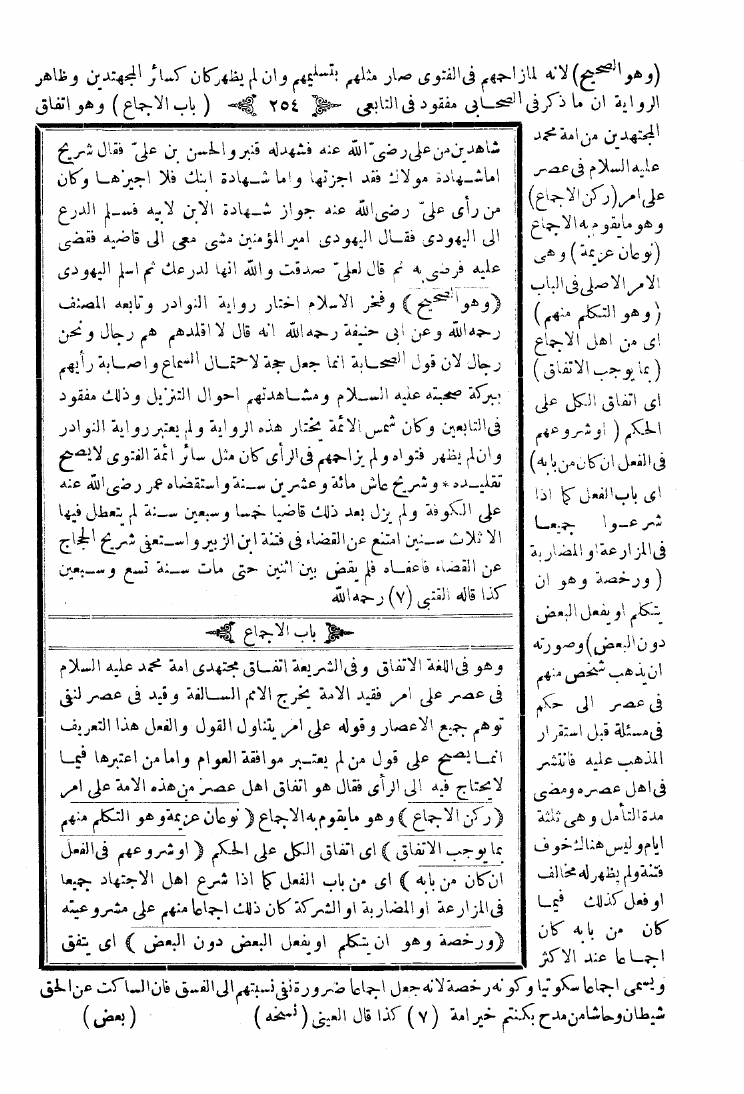 (وهو الصحيح) لانه لمازاحمهم فى الفتوى صار مثلهم بتسليمهم وان لم يظهر كان كسائر المجتهدين وظاهر
الرواية ان ما ذكر فى الصحابى مفقود فى التابعى ﴿ ٢٥٤ ﴾ (باب الاجماع) وهو اتفاق
المجتهدين من امة محمد
عليه السلام فى عصر
على امر (ركن الاجماع)
وهو مايقوم به الاجماع
(نوعان عزيمة) وهى
الامر الاصلى فى الباب
(وهو التكلم منهم)
اى من اهل الاجماع
(بما يوجب الاتفاق)
اى اتفاق الكل على
الحكم (اوشروعهم
فى الفعل ان كان من بابه)
اى باب الفعل كما اذا
شرعوا جميعا
فى المزارعة او المضاربة
(ورخصة وهو ان
يتكلم او يفعل البعض
دون البعض) وصورته
ان يذهب شخص منهم
فى عصر الى حكم
فى مسئلة قبل استقرار
المذهب عليه فانتشر
فى اهل عصره ومضى
مدة التأمل وهى ثلثة
ايام وليس هناك خوف
فتنة ولم يظهر له مخالف
او فعل كذلك فيما
كان من بابه كان
اجماعا عند الاكثر
شاهدين من على رضى الله عنه فشهد له قنبر والحسن بن على فقال شريح
اما شهادة مولاك فقد اجزتها واما شهادة ابنك فلا اجيزها وكان
من رأى على رضى الله عنه جواز شهادة الابن لابيه فسلم الدرع
الى اليهودى فقال اليهودى امير المؤمنين مشى معى الى قاضيه فقضى
عليه فرضى به ثم قال لعلى صدقت والله انها لدرعك ثم اسلم اليهودى
﴿وهو الصحيح﴾ وفخر الاسلام اختار رواية النوادر وتابعه المصنف
رحمه الله وعن ابى حنيفة رحمه الله انه قال لا اقلدهم هم رجال ونحن
رجال لان قول الصحابة انما جعل حجة لاحتمال السماع واصابة رأيهم
ببركة صحبته عليه السلام ومشاهدتهم احوال التنزيل وذلك مفقود
فى التابعين وكان شمس الائمة يختار هذه الرواية ولم يعتبر رواية النوادر
وان لم يظهر فتواه ولم يزاحمهم فى الرأى كان مثل سائر ائمة الفتوى لايصح
تقليده * وشريح عاش مائة وعشرين سنة واستقضاه عمر رضى الله عنه
على الكوفة ولم يزل بعد ذلك قاضيا خمسا وسبعين سنة لم يتعطل فيها
الا ثلاث سنين امتنع عن القضاء فى فتنة ابن الزبير واستعفى شريح الحجاج
عن القضاء فاعفاه فلم يقض بين اثنين حتى مات سنة تسع وسبعين
كذا قاله القتبى (٧) رحمه الله
﴿ باب الاجماع ﴾
وهو فى اللغة الاتفاق وفى الشريعة اتفاق مجتهدى امة محمد عليه السلام
فى عصر على امر فقيد الامة يخرج الامم السالفة وقيد فى عصر لنفى
توهم جميع الاعصار وقوله على امر يتناول القول والفعل هذا التعريف
انما يصح على قول من لم يعتبر موافقة العوام واما من اعتبرها فيما
لايحتاج فيه الى الرأى فقال هو اتفاق اهل عصر من هذه الامة على امر
﴿ركن الاجماع﴾ وهو مايقوم به الاجماع ﴿نوعان عزيمة وهو التكلم منهم
بما يوجب الاتفاق﴾ اى اتفاق الكل على الحكم ﴿اوشروعهم فى الفعل
ان كان من بابه﴾ اى من باب الفعل كما اذا شرع اهل الاجتهاد جميعا
فى المزارعة او المضاربة او الشركة كان ذلك اجماعا منهم على مشروعيته
﴿ورخصة وهو ان يتكلم او يفعل البعض دون البعض﴾ اى يتفق
ويسمى اجماعا سكوتيا وكونه رخصة لانه جعل اجماعا ضرورة نفى نسبتهم الى الفسق فان الساكت عن الحق
شيطان وحاشا من مدح بكنتم خير امة (٧) كذا قال العينى (نسخه) (بعض)